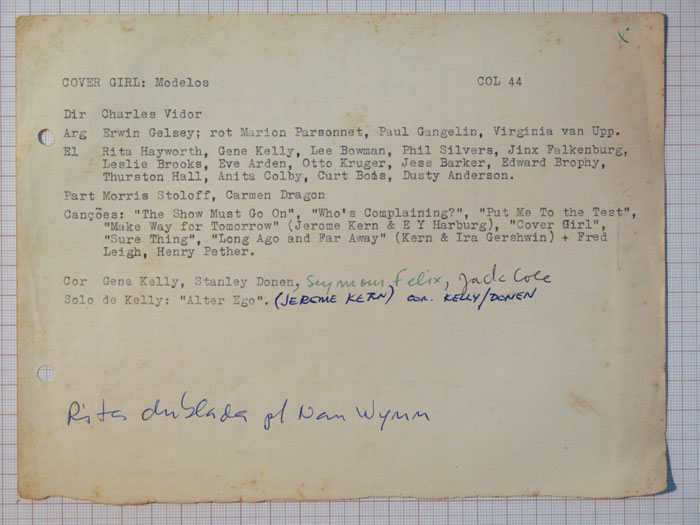 x
COVER GIRL: Modelos COL 44
Dir Charles Vidor
Arg Erwin Gelsey; rot Marion Parsonnet, Paul Gangelin, Virginia van Upp.
El Rita Hayworth, Gene Kelly, Lee Bowman, Phil Silvers, Jinx Falkenburg,
Leslie Brooks, Eve Arden, Otto Kruger, Jess Barker, Edward Brophy,
Thurston Hall, Anita Colby, Curt Bois, Dusty Anderson.
Part Morris Stoloff, Carmen Dragon
Canções: "The Show Must Go On", "Who's Complaining?", "Put Me To the Test",
"Make Way for Tomorrow" (Jerome Kern & E Y Harburg), "Cover Girl",
"Sure Thing", "Long Ago and Far Away" (Kern & Ira Gershwin) + Fred
Leigh, Henry Pether.
Cor Gene Kelly, Stanley Donen, Seymour Felix, Jack Cole
Solo de Kelly: "Alter Ego". (JEROME KERN) cor. KELLY/DONEN
Rita dublada p/ Nan Wynn